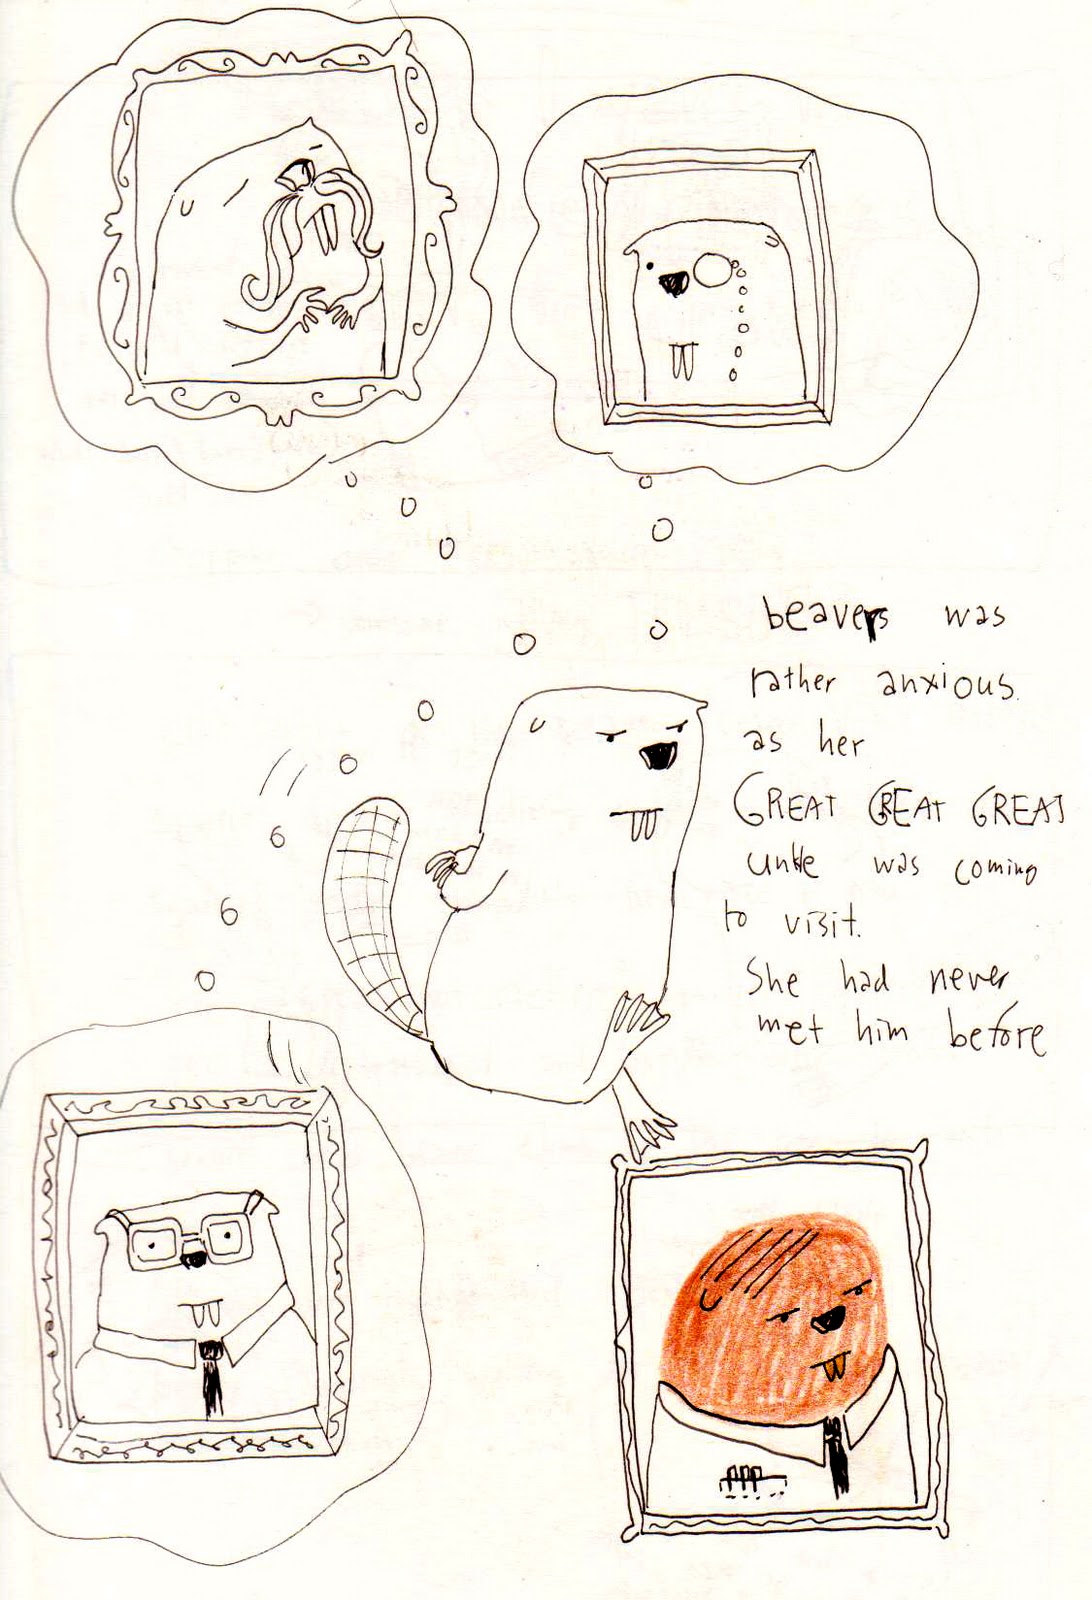 beavers was
rather anxious.
as her
GREAT GREAT GREAT
unkle was coming
to visit.
She had never
met him before